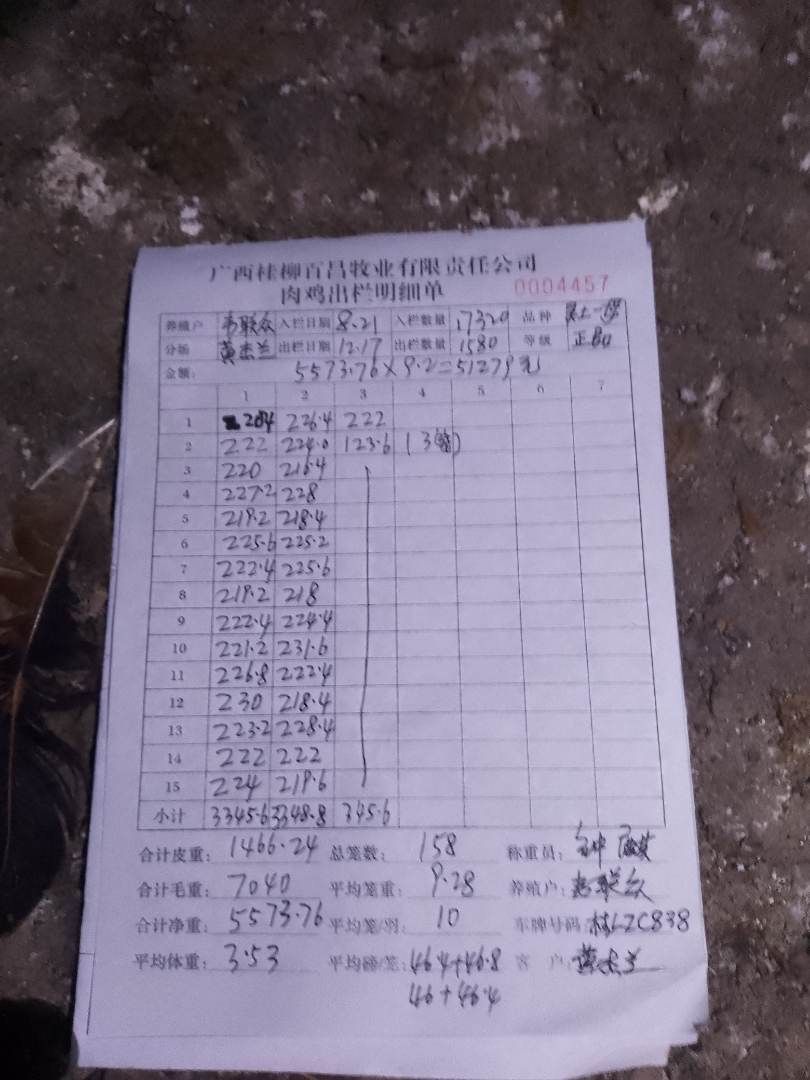 广西桂柳百昌牧业有限责任公司
肉鸡出栏明细单 0004457
养殖户 韦联众 入栏日期 8.21 入栏数量 17320 品种
分场 黄杰兰 出栏日期 12.17 出栏数量 1580 等级 正品
金额: 5573.76×9.2=51279元
1 2 3 4 5 6 7
1 204 226.4 222
2 222 224.0 123.6 (3笼)
3 220 216.4
4 227.2 228
5 219.2 218.4
6 225.6 225.2
7 222.4 225.6
8 219.2 218
9 222.4 224.4
10 221.2 231.6
11 226.8 222.4
12 230 218.4
13 223.2 228.4
14 222 222
15 224 219.6
小计 3345.6 3348.8 345.6
合计皮重: 1466.24 总笼数: 158 称重员:
合计毛重: 7040 平均笼重: 9.28 养殖户: 韦联众
合计净重: 5573.76 平均笼/羽: 10 车牌号码: 桂LZC838
平均体重: 3.53 平均磅/笼: 46.4+46.8 客户: 黄杰兰
46+46.4